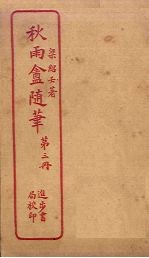 梁紹壬著
秋雨盦隨筆
第三冊
進步書
局校印